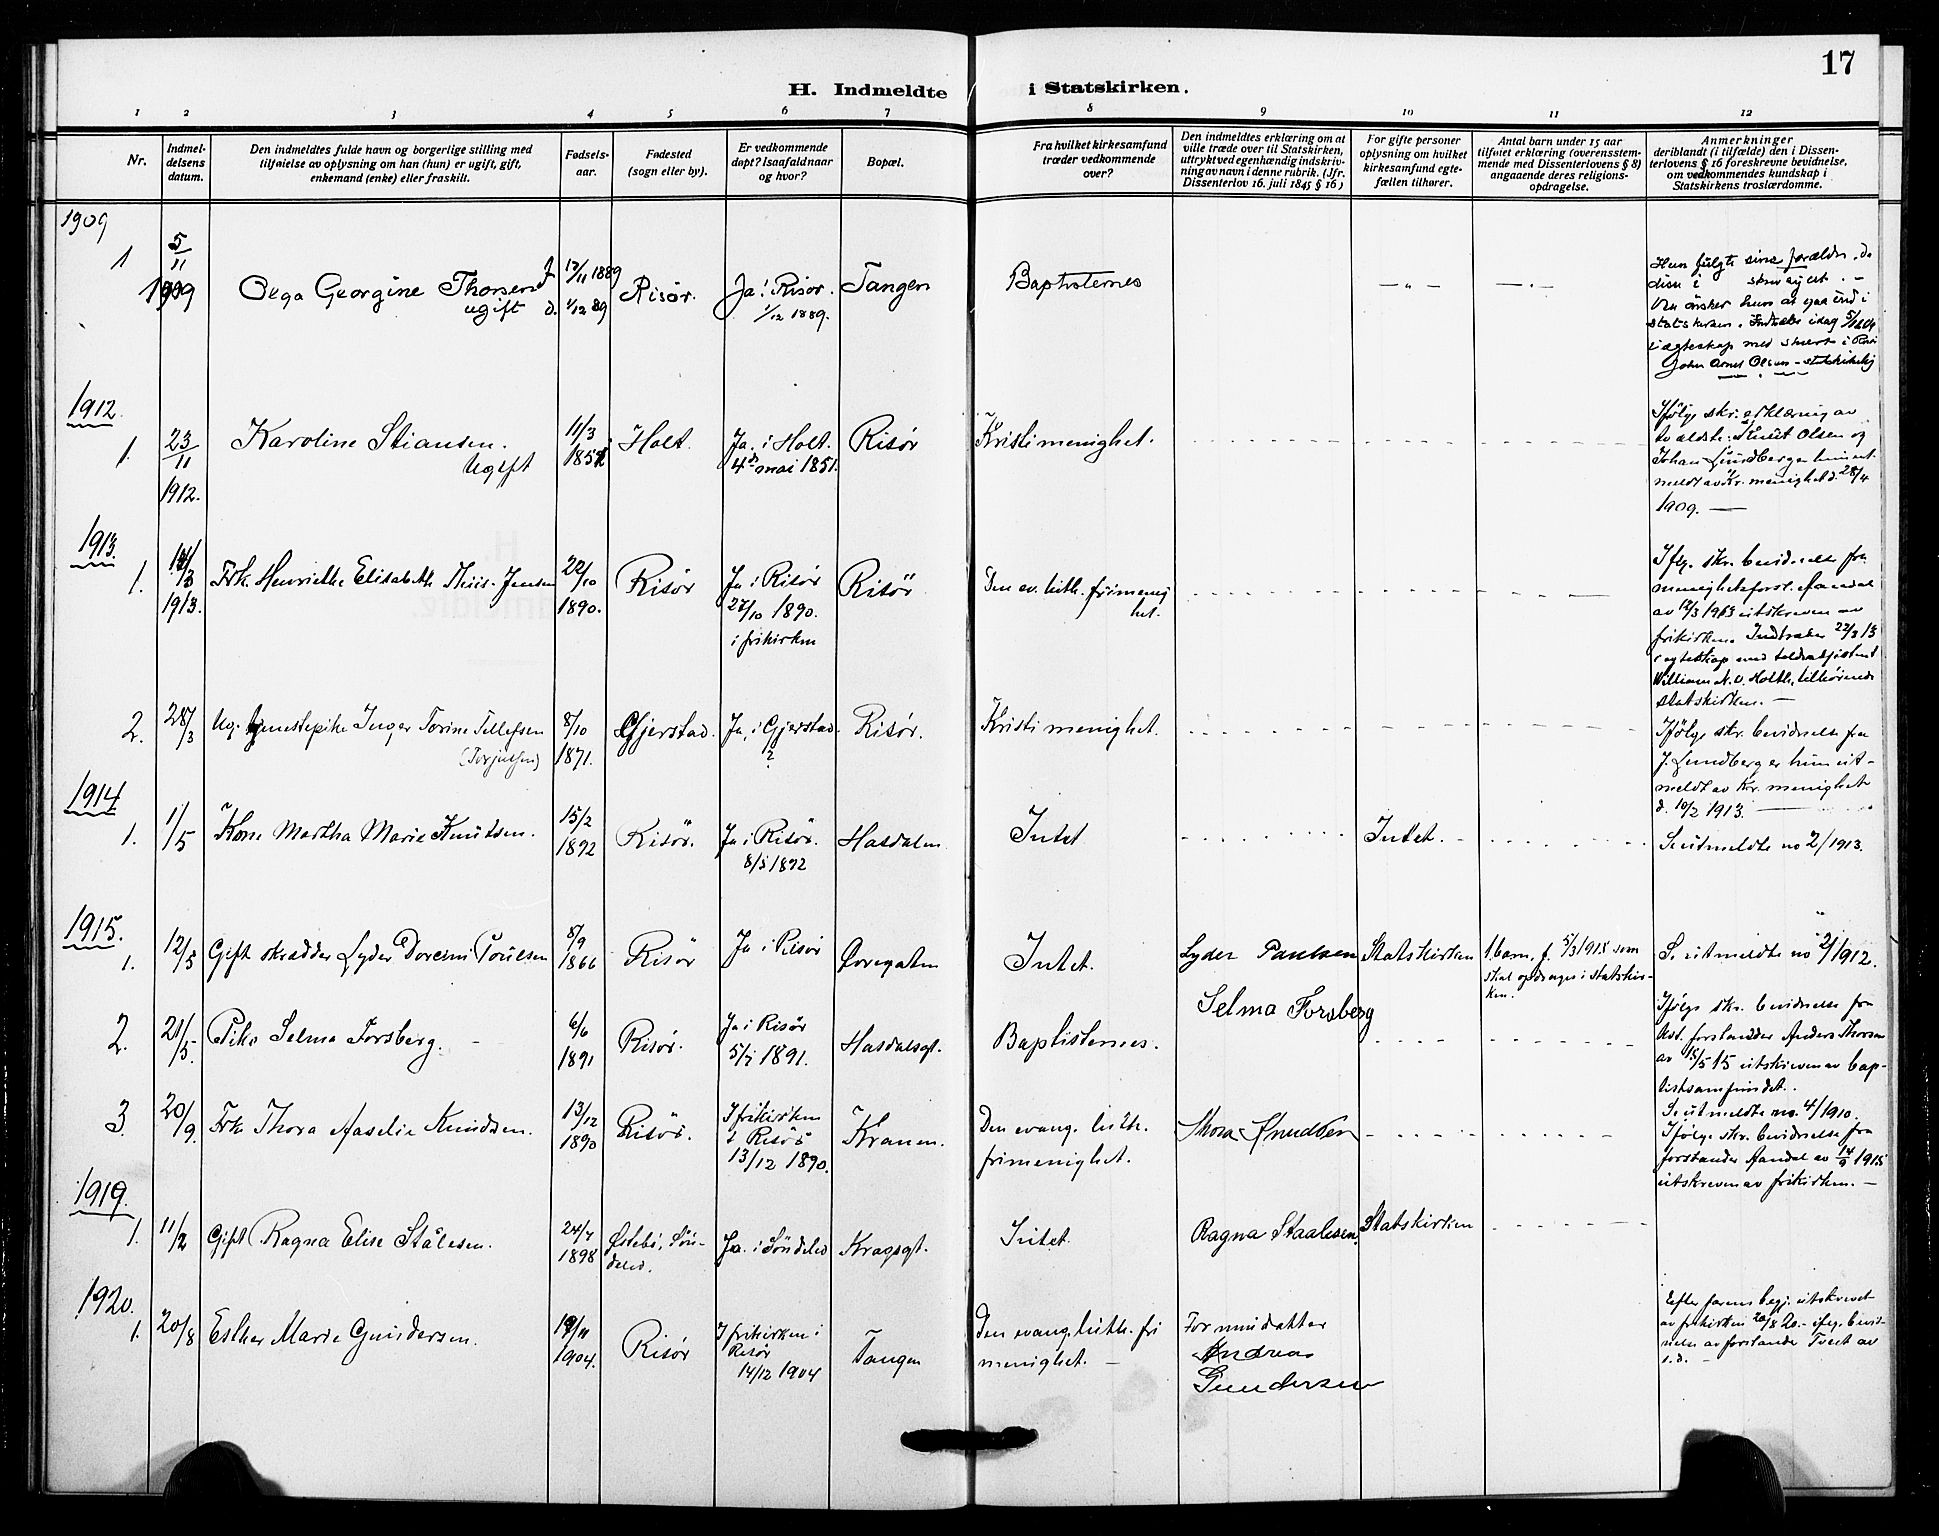 17
H. Indmeldte i Statskirken.
1 2 3 4 5 6 7 8 9 10 11 12
Nr.
Indmel-
delsens
datum.
Den indmeldtes fulde navn og borgerlige stilling med
tilføielse av oplysning om han (hun) er ugift, gift,
enkemand (enke) eller fraskilt.
Fødsels-
aar.
Fødested
(sogn eller by).
Er vedkommende
døpt? Isaafald naar
og hvor?
Bopæl.
Fra hvilket kirkesamfund
træder vedkommende
over?
Den indmeldtes erklæring om at
ville træde over til Statskirken,
uttrykt ved egenhændig indskriv-
ning av navn i denne rubrik. (Jfr.
Dissenterlov 16. juli 1845 § 16)
For gifte personer
oplysning om hvilket
kirkesamfund egte-
fællen tilhører.
Antal barn under 15 aar
tilføiet erklæring (overensstem-
mende med Dissenterlovens § 8)
angaaende deres religions-
opdragelse.
Anmerkninger
deriblandt (i tilfælde) den i Dissen-
terlovens § 16 foreskrevne bevidnelse,
om vedkommendes kundskap i
Statskirkens troslærdomme.
1909
1
5/11
1909
Olga Georgine Thorsen
ugift
f. 13/11 1889
d. 1/12 89
Risør.
Ja i Risør.
1/12 1889.
Tangen
Baptisternes
— " —
— " —
Hun fulgte sine forældre, da
disse i
Nu ønsker hun at gaa ind i
statskirken. Indtræder idag 5/11 09
i ægteskap med
John Arnt Olsen - statskirkelig
1912.
1.
23/11
1912.
Karoline Stiansen.
Ugift
11/3
1851
Holt.
Ja. i Holt.
4de mai 1851.
Risør
Kristi menighet.
Ifølge skr. erklæring av
to ældste: Knut Olsen og
Johan Lundberg er hun ut-
meldt av Kr. menighet d. 28/4
1909. —
1913.
1.
14/3
1913.
Frk. Henriette Elisabeth Thiis-Jensen
22/10
1890.
Risør
Ja i Risør
27/10 1890.
i frikirken
Risør
Den ev. luth. frimenig
het.
Ifлg. skr. bevidnelse fra
menighetsforst. Aandal
av 12/3 1913 utskreven av
frikirken. Indtræder 22/3 13
i egteskap med toldassistent
William N. v. Holth, tilhørende
statskirken. —
2.
28/3
Ug. tjenestepike Inger Torine Tellefsen
(Torjussen)
8/10
1871.
Gjerstad.
Ja, i Gjerstad.
?
Risør.
Kristi menighet.
Ifølge skr. bevidnelse fra
J. Lundberg er hun ut-
meldt av Kr. menighet
d. 10/2 1913. —
1914
1.
1/5
Kone Martha Marie Knutsen.
15/2
1892
Risør.
Ja i Risør.
8/5 1892
Hasdalen
Intet
Intet. -
Se utmeldte no 2/1913.
1915.
1.
12/5
Gift skrædder Lyder Poulsen
8/9
1866
Risør
Ja i Risør
Øvregaten
Intet.
Lyder Paulsen
Statskirken
1 barn, f. 5/3 1915 som
skal opdrages i statskir-
ken.
Se utmeldte no 2/1912.
2.
21/5
Pike Selma Forsberg.
6/6
1891
Risør.
Ja i Risør
5/7 1891.
Hasdalsgt.
Baptisternes.
Selma Forsberg
Ifølge skr. bevidnelse fra
forstander Anders Thorsen
av 15/5 15 utskreven av bap-
tistsamfundet.
3.
20/9
Frk. Thora Aaselie Knudsen.
13/12
1890
Risør.
I frikirken
i Risør
13/12 1890.
Kranen.
Den evang. luth.
frimenighet.
Thora Knudsen
Se utmeldte no. 4/1910.
Ifølge skr. bevidnelse fra
forstander Aandal av 14/9 1915
utskreven av frikirken. —
1919.
1.
11/2
Gift Ragna Elise Stålesen.
24/7
1898
Østebø, Søn-
deled.
Ja. i Søndeled
Kragsgt.
Intet
Ragna Staalesen.
Statskirken
1920.
1.
20/8
Esther Marie Gundersen.
19/11
1904.
Risør
I frikirken i
Risør
14/12 1904
Tangen
Den evang. luth. fri
menighet. —
For min datter
Andreas
Gundersen
Efter farens begj. utskrevet
av frikirken 20/8 20. - ifлg. bevid-
nelse av forstander Tveit av
s. d. —